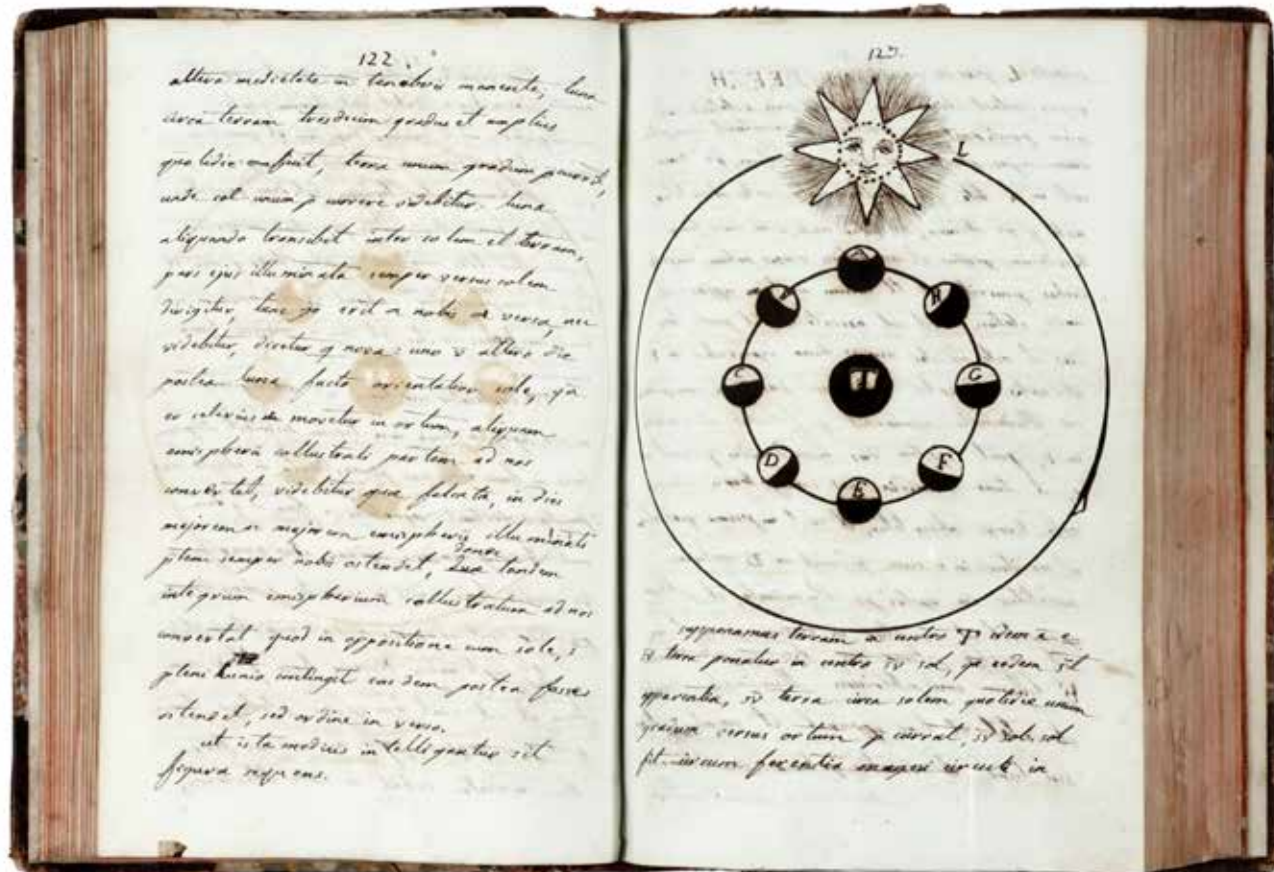 122.
altera medietate in tenebris manente, luna
circa terram tresdecim gradus et amplius
quotidie terra unum gradum
unde sol unum p currere videbitur. luna
aliquando transibit inter solem et terram,
pars ejus illuminata semper versus solem
dirigitur, tunc erit a nobis a versa, nec
videbitur, dicetur q nova: uno v altero die
postea luna facta orientalior sole,
celerius movetur in ortum, aliquam
emispherii collustrati partem ad nos
convertet, videbitur que falcata, in dies
majorem ac majorem emispherii illuminati
ptem semper nobis ostendet, donec tandem
integrum emispherium collustratum ad nos
convertat quod in oppositione cum sole,
contingit eas dem postea fasses
ostendet, sed ordine in verso.
ut ista melius intelligantur sit
figura sequens.
123.
L
A
H
C
T
G
D
F
E
supponamus terram in centro T idem e
terra ponatur in centro sol, eadem
apparentia, terra circa solem quotidie unum
gradum versus ortum p currat, sol
fit circum ferentia magni circuli in